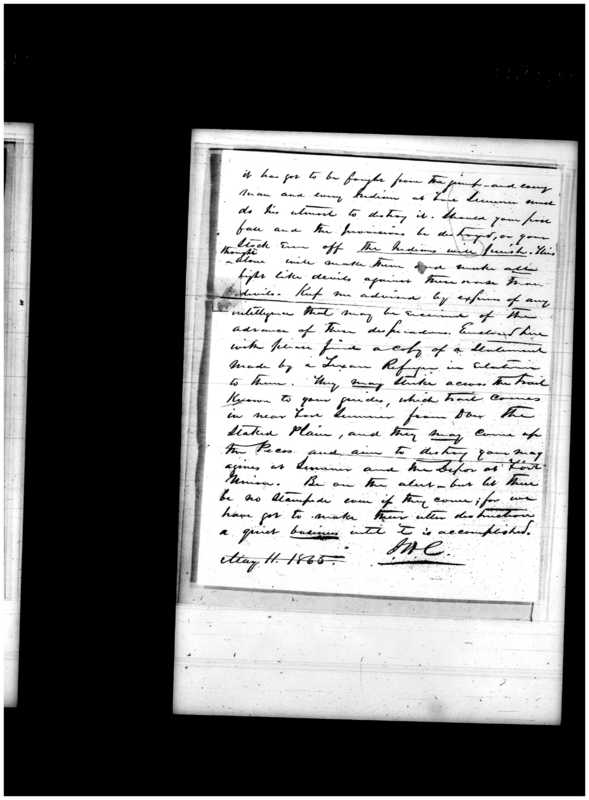 it has got to be fought from the jump - and every
man and every Indian at Fort Sumner must
do his utmost to destroy it. Should your post
fall and the provisions be destroyed, or your
Stock run off the Indians will perish. This
thought
alone will make them and make all
fight like devils against these worse than
devils. Keep me advised by express of any
intelligence that may be received of the
advance of these desperadoes. Enclosed here
with please find a copy of a Statement
made by a Texan Refugee in relation
to them. They may strike across the trail
known to your guides, which trail comes
in near Fort Sumner from over the
Staked Plain, and they may come up
the Pecos and aim to destroy your mag
azines at Sumner and the Depot at Fort
Union. Be on the alert - but let there
be no Stampede even if they come; for we
have got to make their utter destruction
a quiet business until it is accomplished.
J.H.C.
May 11. 1865.